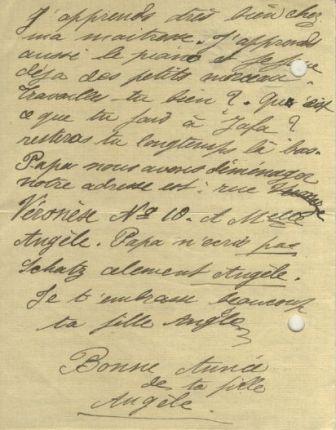 J'apprends très bien chez
ma maitresse. J'apprends
aussi le piano et je joue
déja des petits morceau
Travailles-tu bien? Qu'est
ce que tu fard à Jafa?
resteras tu longtemps là bas.
Papa nous avons déménager
notre adresse est: rue
Véronèse No 10. A Melle
Angèle. Papa n'ecris pas
Schatz alement Angèle.
Je t'embrasse beaucoup
ta fille Angèle
Bonne Anné
de ta fille
Angèle.